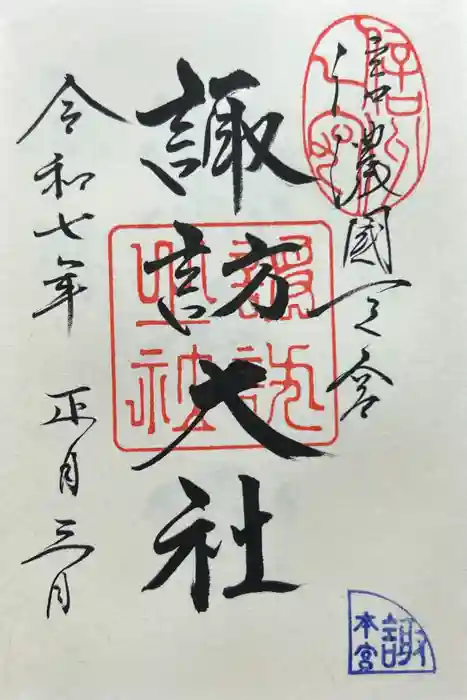 信濃國一之宮
諏訪大社
諏訪大社
令和七年 正月三日
諏
本宮